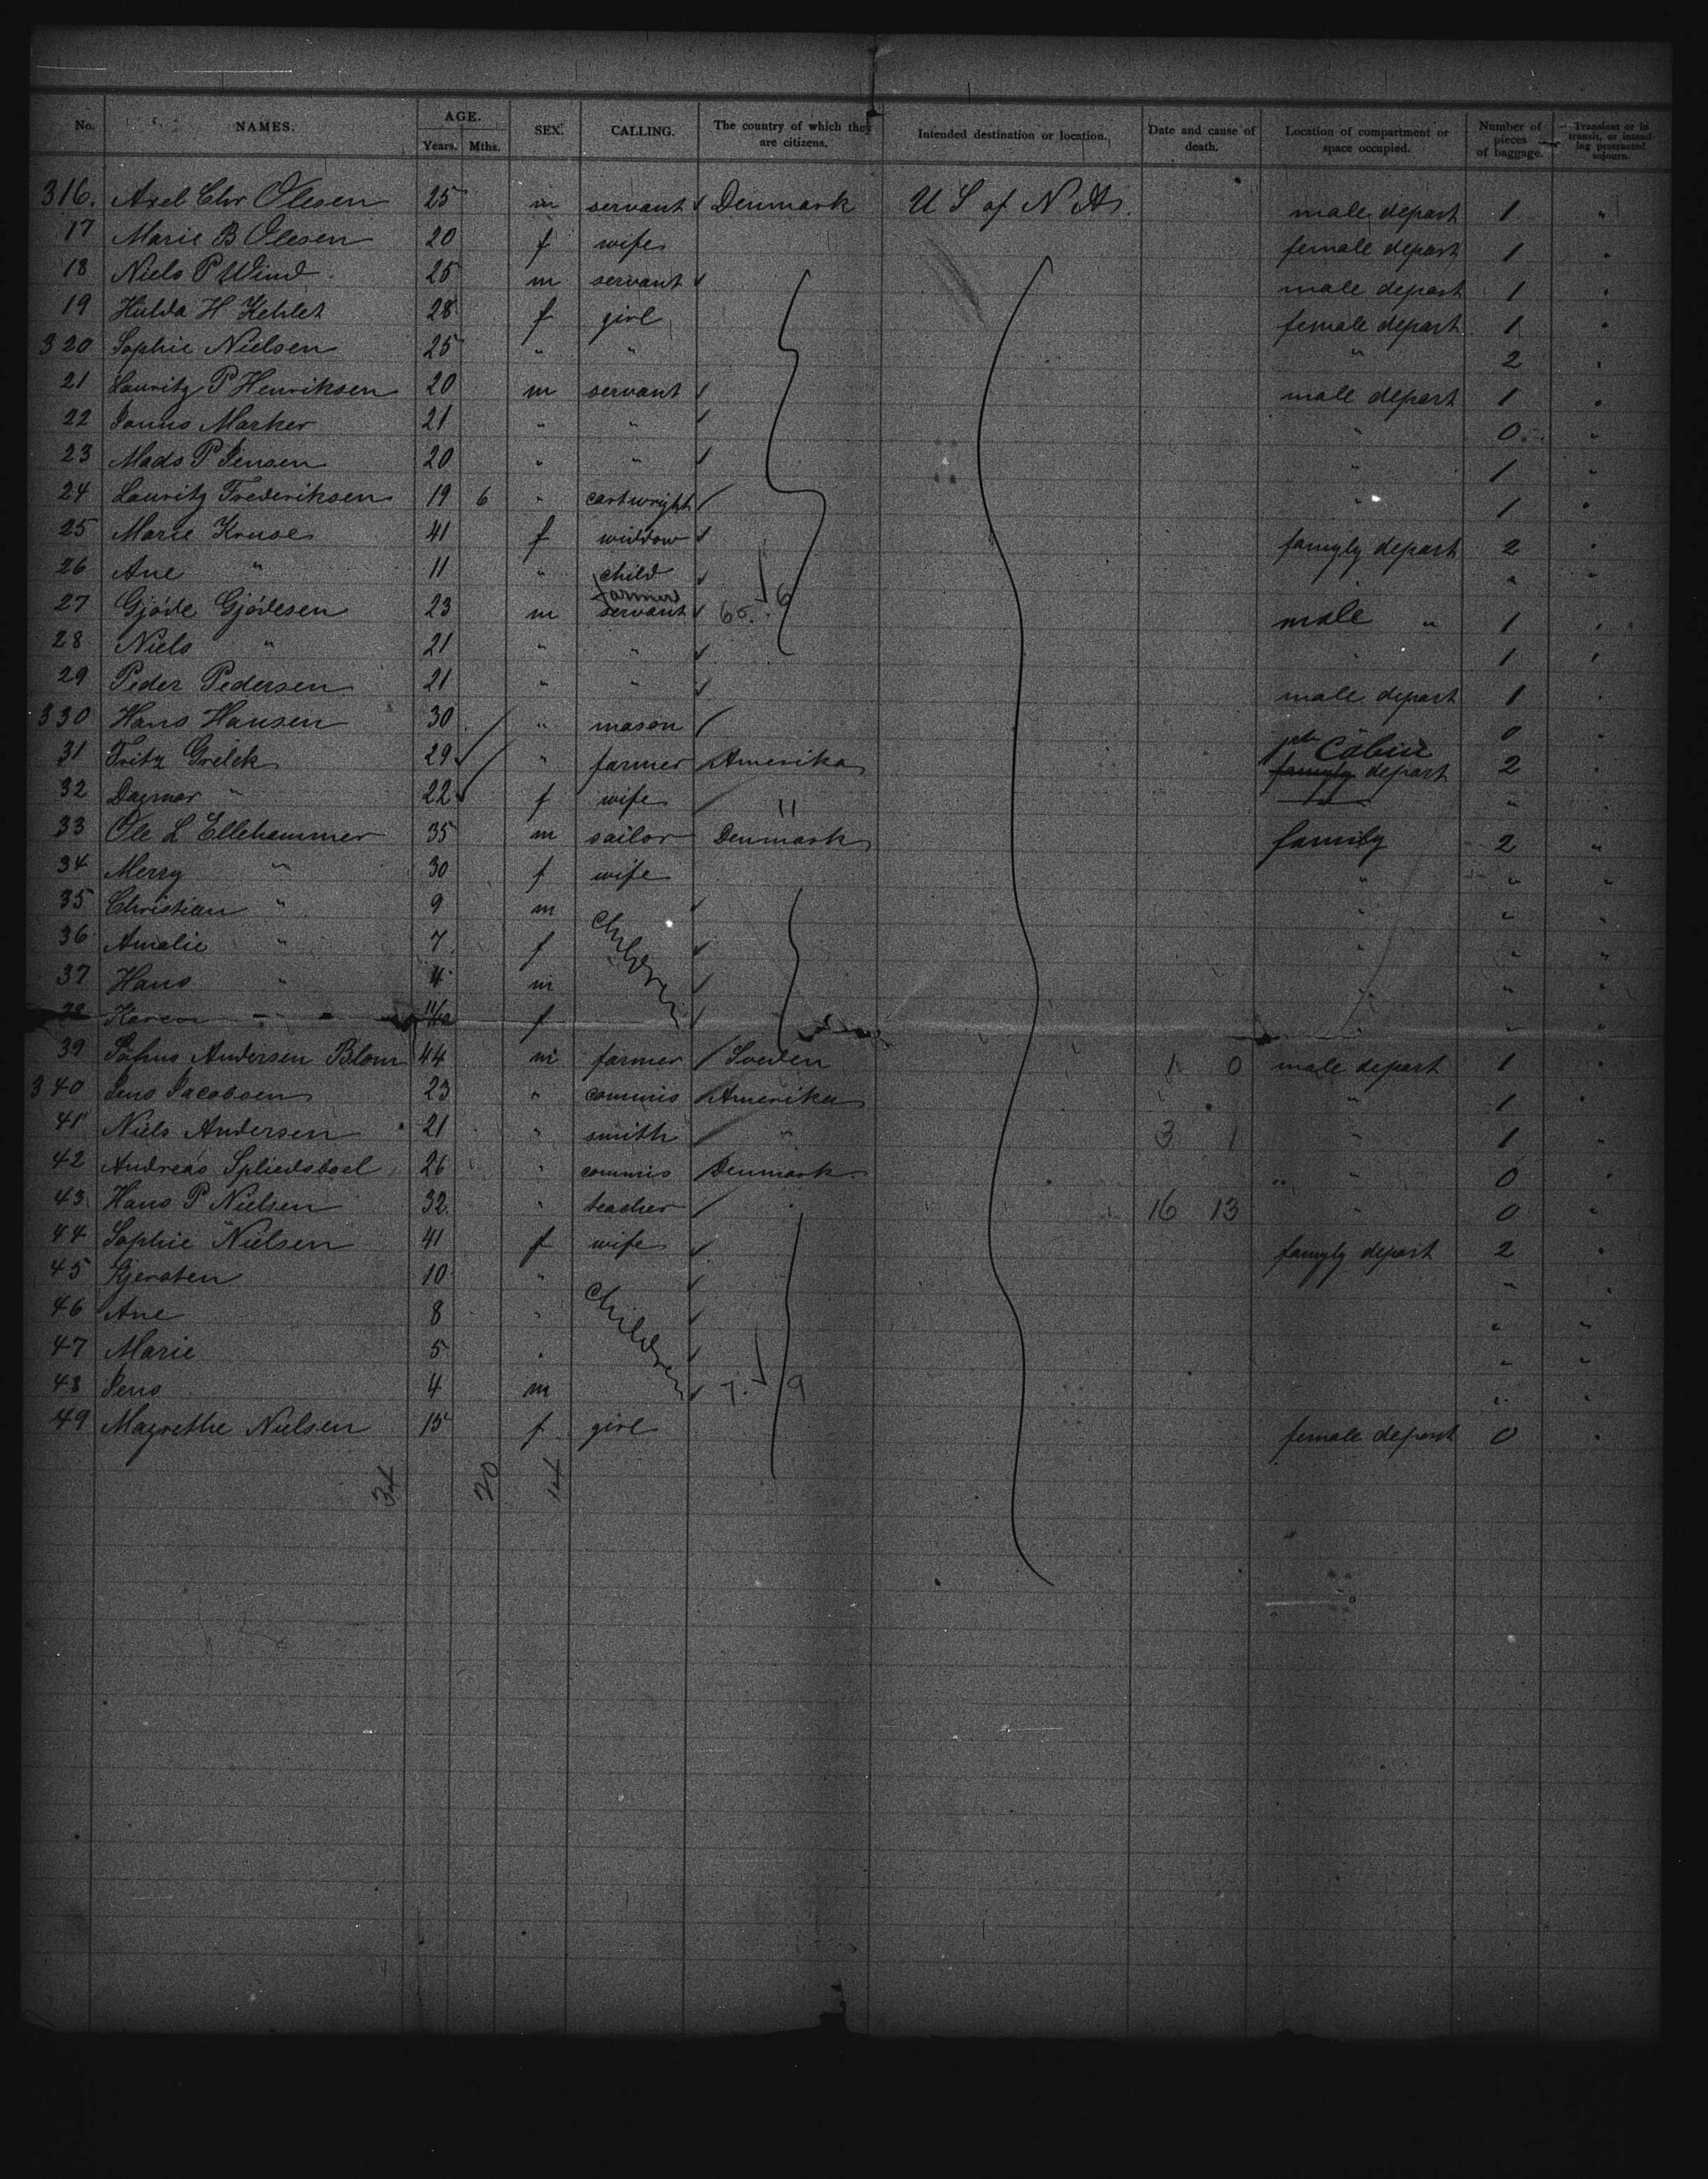 No. NAMES. AGE. Years. Mths. SEX. CALLING. The country of which they are citizens. Intended destination or location. Date and cause of death. Location of compartment or space occupied. Number of pieces of baggage. Transient or in transit, or intending protracted sojourn.
316. Axel Chr Olesen 25 m servant Denmark U S of N A. male depart 1 "
17 Marie B Olesen 20 f wife " female depart 1 "
18 Niels P Wind 25 m servant male depart 1 "
19 Hulda H Kehlet 28 f girl female depart 1 "
320 Sophie Nielsen 25 " " " 2 "
21 Lauritz P Henriksen 20 m servant male depart 1 "
22 Janus Marker 21 " " " 0 "
23 Mads P Jensen 20 " " " 1 "
24 Lauritz Frederiksen 19 6 " cartwright " 1 "
25 Marie Kruse 41 f widdow famyly depart 2 "
26 Ane " 11 " child " "
27 Gjöde Gjödesen 23 m farmer servant 65. 6 male " 1 "
28 Niels " 21 " " " 1 "
29 Peder Pedersen 21 " " male depart 1 "
330 Hans Hansen 30 " mason 0 "
31 Fritz Grelck 29 " farmer Amerika Cabin famyly depart 2 "
32 Dagmar " 22 f wife " " "
33 Ole L Ellehammer 35 m sailor Denmark family 2 "
34 Merry " 30 f wife " " "
35 Christian " 9 m children " " "
36 Amalie " 7 f " " "
37 Hans " 4 m " " "
38 Karen " f " " "
39 Johns Andersen Blom 44 m farmer Sveden 1 0 male depart 1 "
340 Jens Jacobsen 23 " commis Amerika " 1 "
41 Niels Andersen 21 " smith " 3 1 " 1 "
42 Andreas Spliedsboel 26 " commis Denmark " 0 "
43 Hans P Nielsen 32 " teacher " 16 13 " 0 "
44 Sophie Nielsen 41 f wife famyly depart 2 "
45 Kjersten 10 " children " "
46 Ane 8 " " "
47 Marie 5 " " "
48 Jens 4 m 7. 9 " "
49 Magrethe Nielsen 15 f girl female depart 0 "
34 20 14